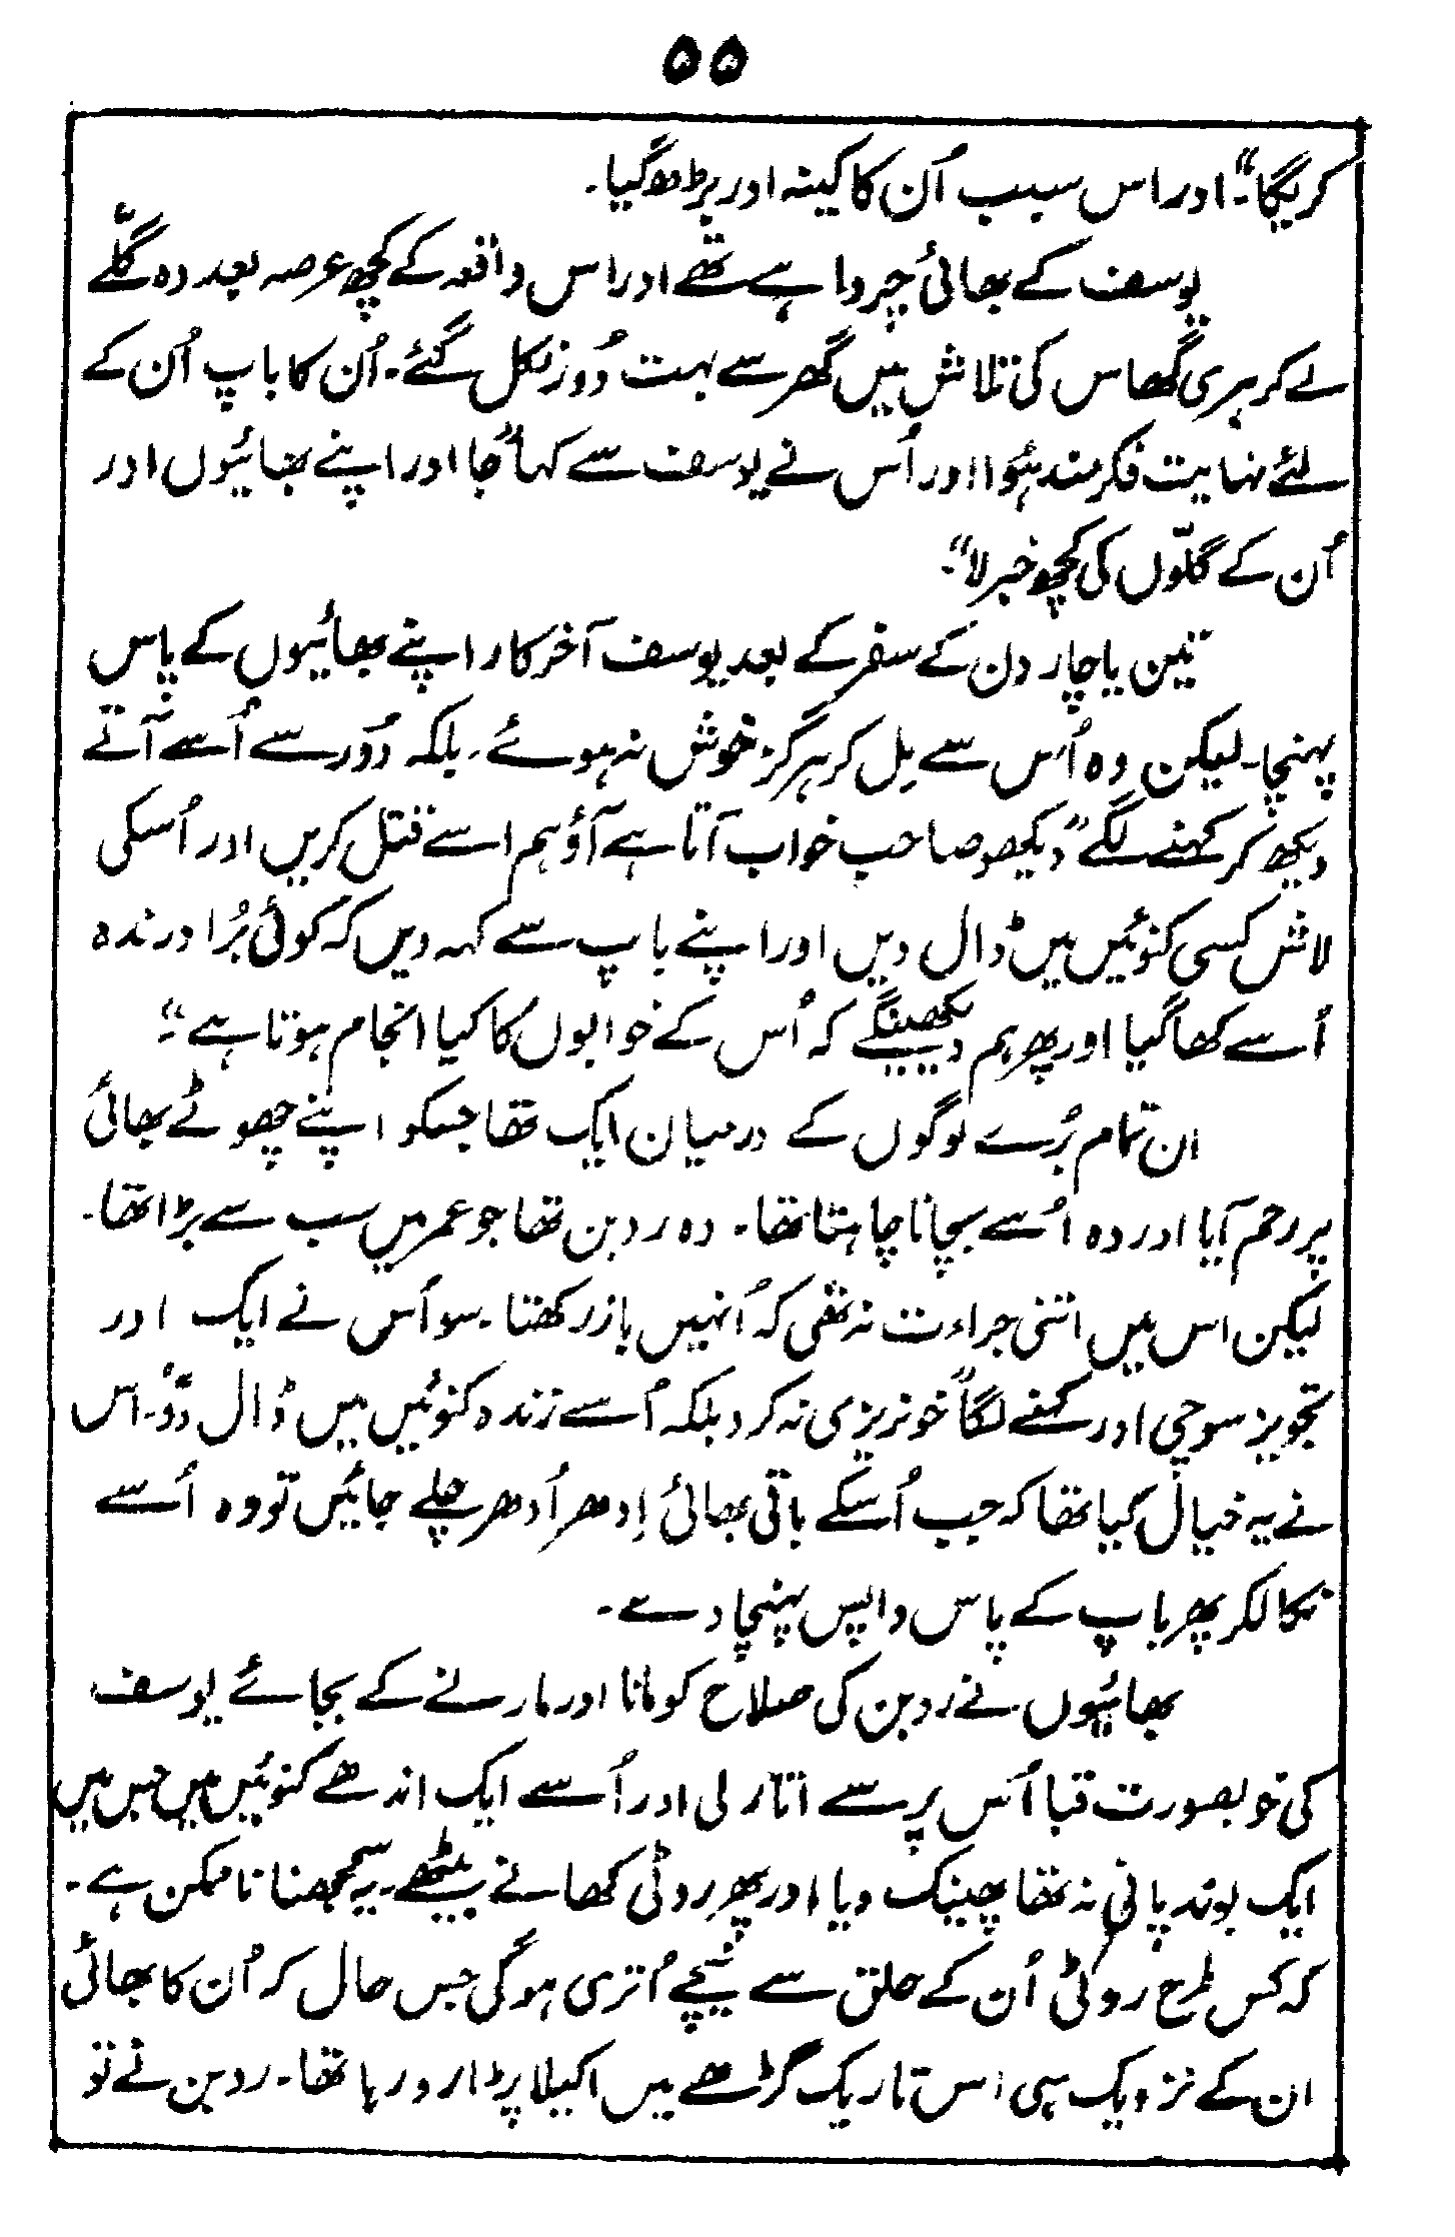 ۵۵
کریگا"۔ اور اس سبب اُن کا کینہ اور بڑھ گیا۔
یوسف کے بھائی چرواہے تھے اور اس واقعہ کے کچھ عرصہ بعد وہ گلّے
لے کر ہری گھاس کی تلاش میں گھر سے بہت دُور نکل گئے۔ اُن کا باپ اُن کے
لئے نہایت فکرمند ہُوا اور اُس نے یوسف سے کہا "جا اور اپنے بھائیوں اور
اُن کے گلّوں کی کچھ خبر لا"۔
تین یا چار دن کے سفر کے بعد یوسف آخرکار اپنے بھائیوں کے پاس
پہنچا۔ لیکن وہ اُس سے مِل کر ہرگز خوش نہ ہوئے۔ بلکہ دُور سے اُسے آتے
دیکھ کر کہنے لگے "دیکھو صاحب خواب آتا ہے آؤ ہم اسے قتل کریں اور اُسکی
لاش کسی کنوئیں میں ڈال دیں اور اپنے باپ سے کہہ دیں کہ کوئی بُرا درندہ
اُسے کھا گیا اور پھر ہم دیکھینگے کہ اُس کے خوابوں کا کیا انجام ہوتا ہے"۔
ان تمام بُرے لوگوں کے درمیان ایک تھا جسکو اپنے چھوٹے بھائی
پر رحم آیا اور وہ اُسے بچانا چاہتا تھا۔ وہ روبن تھا جو عمر میں سب سے بڑا تھا۔
لیکن اس میں اتنی جراءت نہ تھی کہ اُنہیں باز رکھتا۔ سو اُس نے ایک اور
تجویز سوچی اور کہنے لگا "خونریزی نہ کرو بلکہ اُسے زندہ کنوئیں میں ڈال دو"۔ اس
نے یہ خیال کیا تھا کہ جب اُسکے باقی بھائی اِدھر اُدھر چلے جائیں تو وہ اُسے
نکالکر پھر باپ کے پاس واپس پہنچا دے۔
بھائیوں نے روبن کی صلاح کو مانا اور مارنے کے بجائے یوسف
کی خوبصورت قبا اُس پر سے اتار لی اور اُسے ایک اندھے کنوئیں میں جس میں
ایک بوند پانی نہ تھا پھینک دیا اور پھر روٹی کھانے بیٹھے۔ یہ سمجھنا ناممکن ہے۔
کہ کس طرح روٹی اُن کے حلق سے نیچے اُتری ہوگی جس حال کہ اُن کا بھائی
ان کے نزدیک ہی اس تاریک گڑھے میں اکیلا پڑا رو رہا تھا۔ روبن نے تو